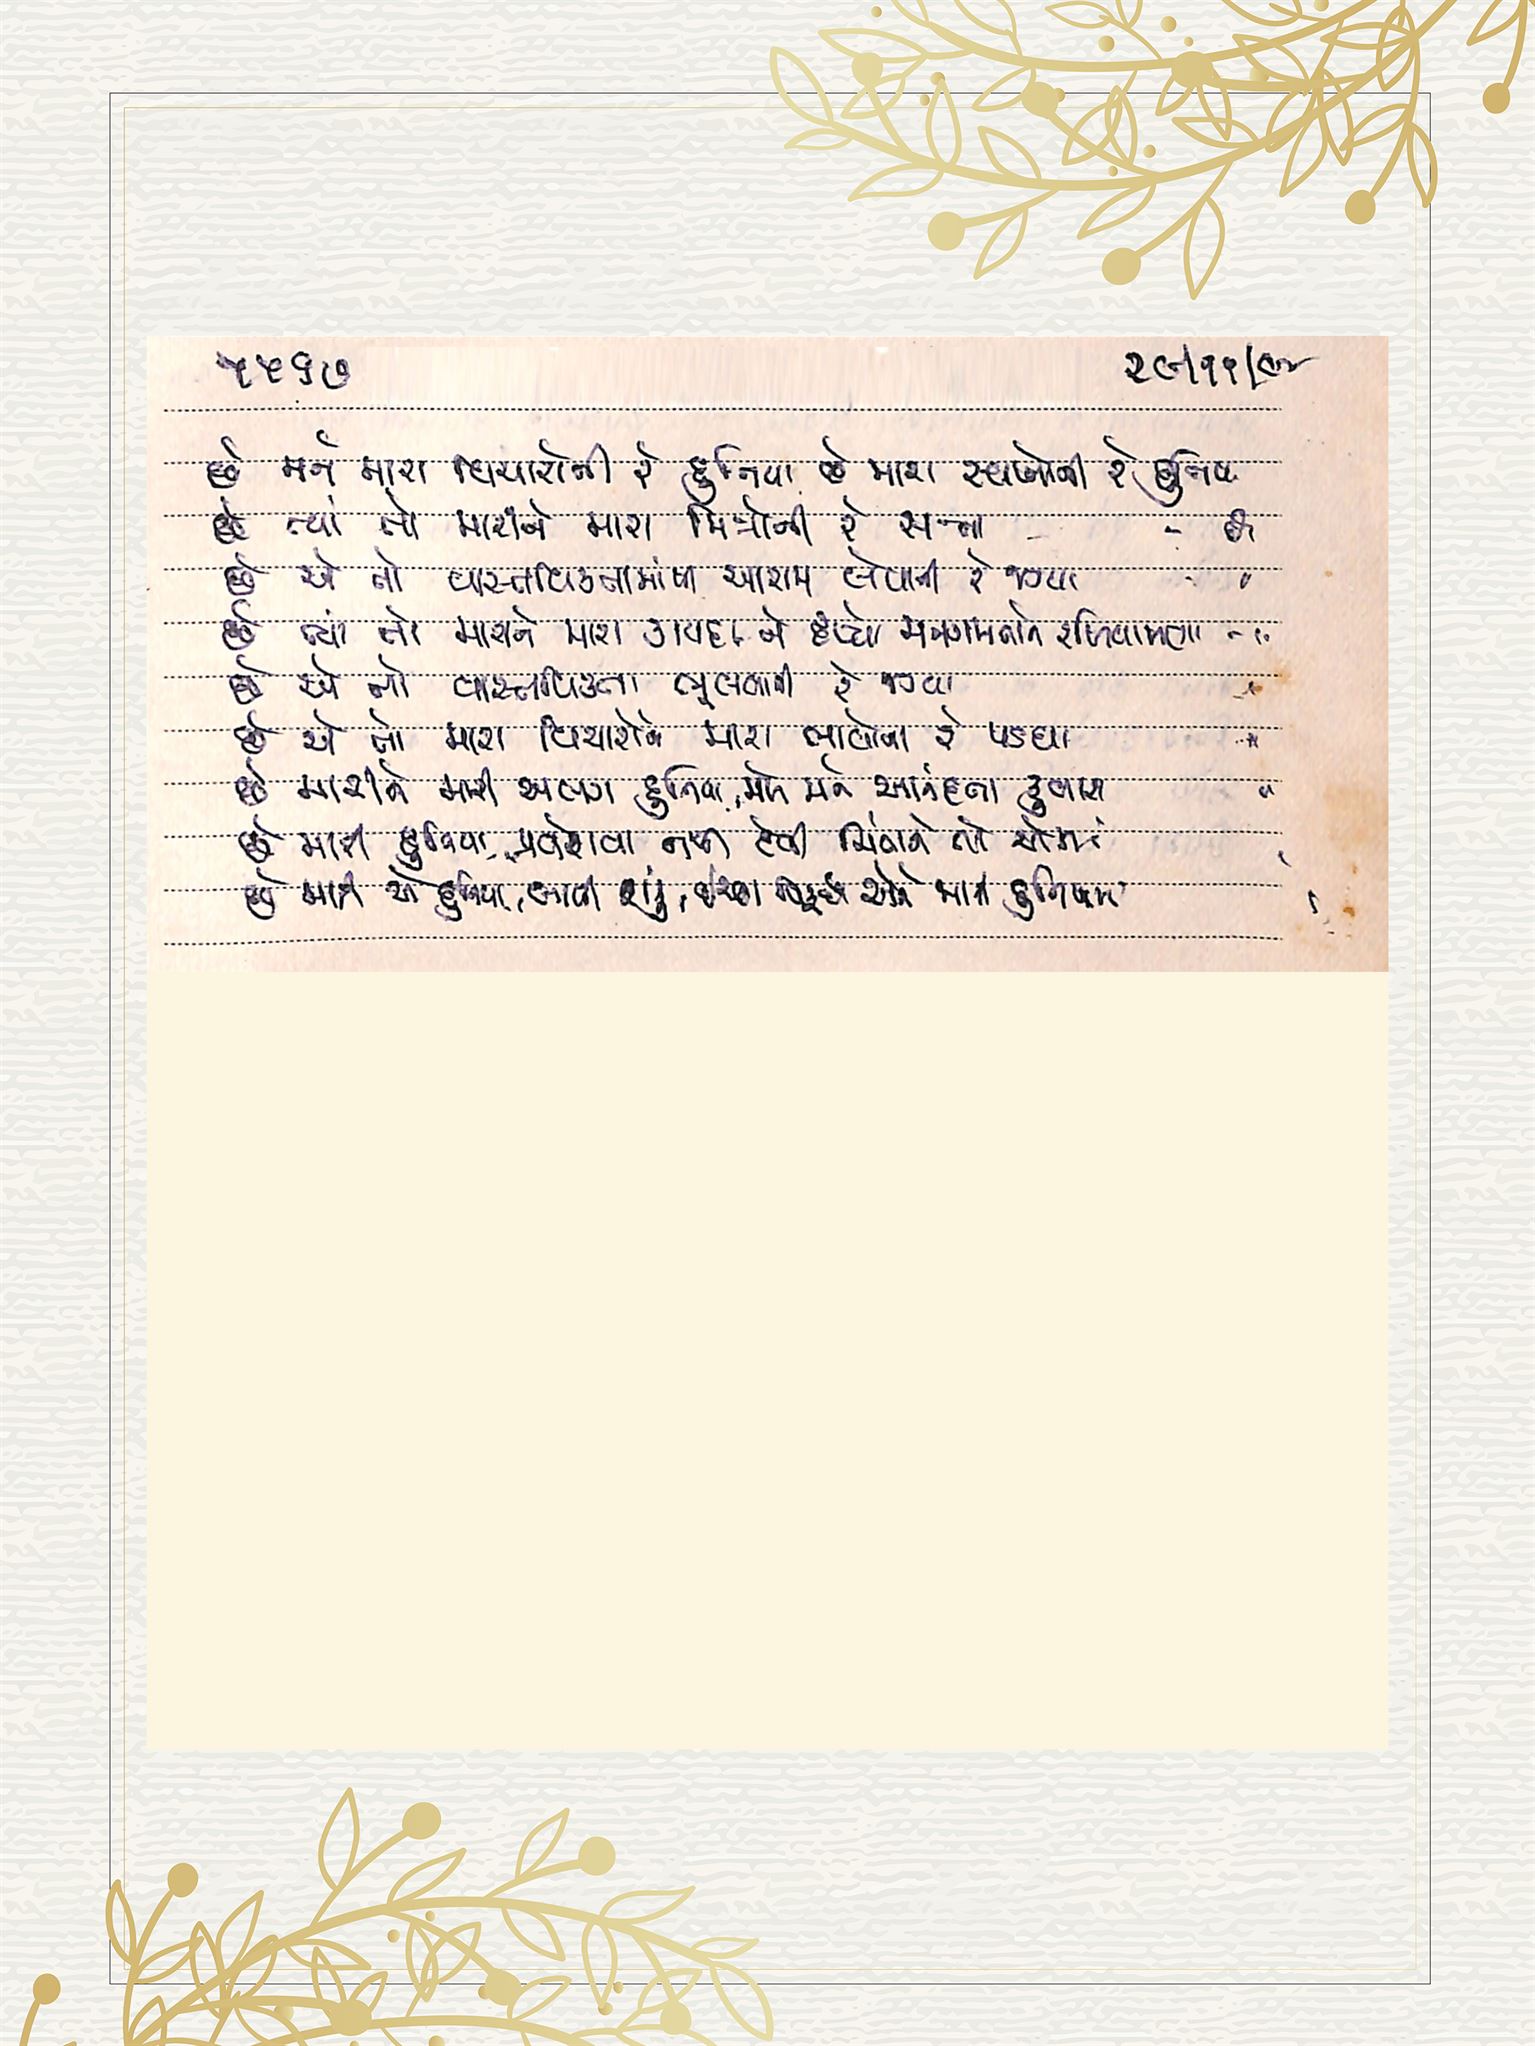 ૫૫૬૭ ૨૯/૧૧/૯૪
છે મને મારા વિચારોની રે દુનિયા છે મારા સ્વપ્નોની રે દુનિયા
છે ત્યાં તો મારીને મારા મિત્રોની રે સત્તા - - છે
છે એ તો વાસ્તવિકતામાંથી આરામ લેવાની રે જગ્યા
છે ત્યાં તો મારાને મારા કાયદા, ને
છે એ તો વાસ્તવિકતા ભૂલવાની રે જગ્યા
છે એ તો મારા વિચારોને મારા ભાવોના રે પડઘા
છે મારીને મારી અલગ દુનિયા, મને આનંદના
છે મારી દુનિયા, પ્રવેશવા નથી દેવી ચિંતાને તો એમાં
છે મારી એ દુનિયા, આવી શકું, ઇચ્છા વિરૂદ્ધ એને મારી દુનિયામાં